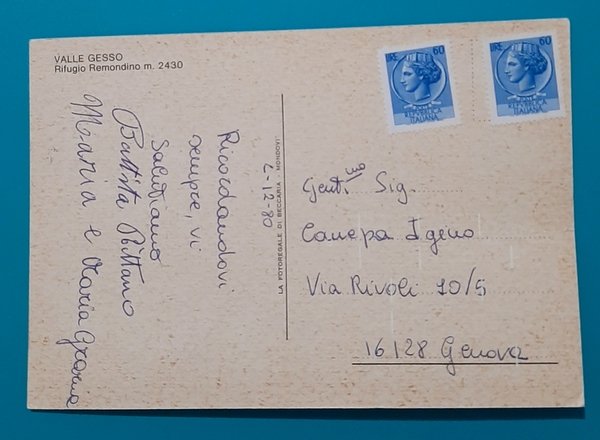 VALLE GESSO
Rifugio Remondino m. 2430
2-12-80
Ricordandovi
sempre, vi
salutiamo
Battista
Maria e Maria Grazia
LA FOTOREGALE DI BECCARIA - MONDOVI'
LIRE 60
LIRE 60
REPUBBLICA
ITALIANA
Gent.mo Sig.
Canepa Igeno
Via Rivoli 10/5
16128 Genova